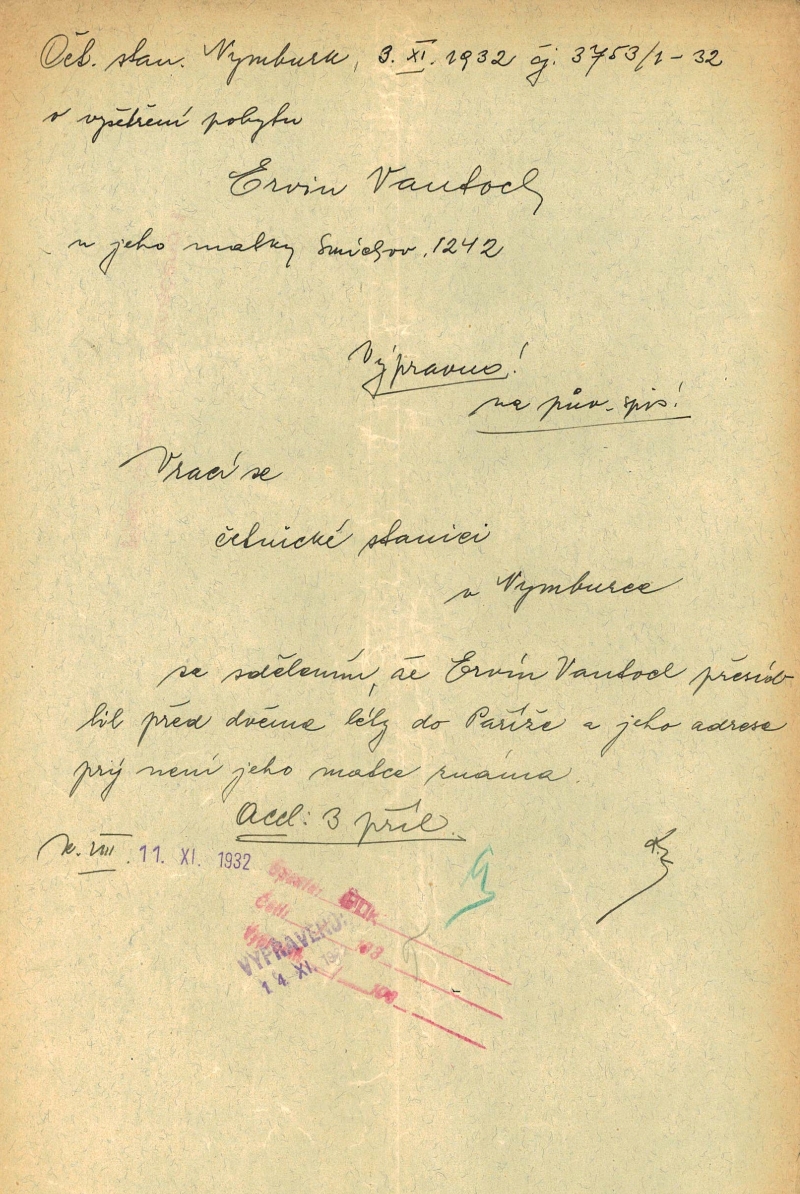 Čet. stan. Nymburk, 3. XI. 1932 čj. 3753/1-32
o vyšetření pobytu
Ervin Vantoch
u jeho matky Smíchov, 1242
Výpravno!
na pův. spis!
Vrací se
četnické stanici
v Nymburce
se sdělením, že Ervín Vantoch přesíd-
lil před dvěma léty do Paříže a jeho adresa
prý není jeho matce známa.
Accl: 3 příl.
k. VIII. 11. XI. 1932
VYPRAVENO:
14. XI.
193
193